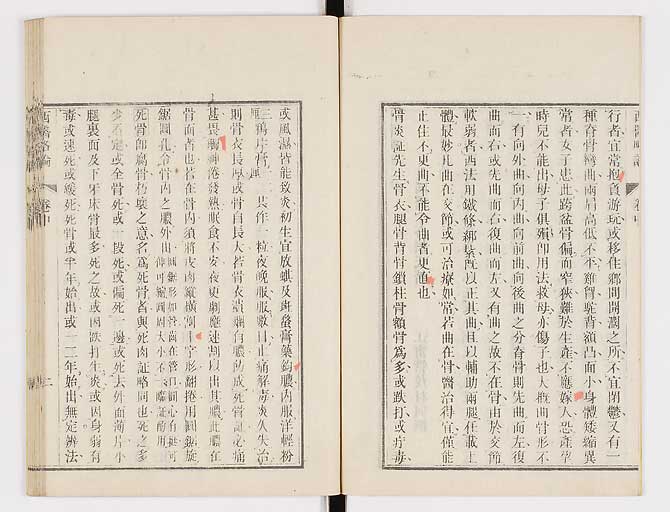 行者宜常抱負游玩或移住鄉間開濶之所不宜閉鬱又有一
種脊骨彎曲兩肩高低不平雞胸駝背額凸面小身體矮縮異
常者女子患此跨盆骨偏而窄狹難於生產不應嫁人恐產孕
時兒不能出母子俱殞卽用法救母亦傷子也大概曲骨形不
一有向外曲向內曲向前曲向後曲之分脊骨則先曲而左復
曲而右或先曲而右復曲而左又有曲之故不在骨由於交節
軟弱者西法用鐵條綁紮旣以正其曲且以輔助兩腿任載上
體最妙凡曲在交節或可治療如常若曲在骨醫治得宜僅能
止住不更曲不能令曲者更直也
骨炎証先生骨衣腿骨背骨鎖柱骨額骨爲多或跌打或疔毒
西醫略論 卷中
或風濕皆能致炎初生宜放蜞及斑蝥膏藥釣膿內服洋輕粉
三厘鴉片膏一厘共作一粒夜晚服服數日止痛解毒炎久失治
則骨衣長厚或骨自長大若骨衣潰爛有膿飭成死骨証必痛
甚畏觸神倦發熱眠食不安夜更劇應速割以出其膿此膿在
骨面者也若在骨內須將皮肉縱橫割十字形翻捲用圓鋸旋
鋸圓孔令骨內之膿外出
死骨卽腐骨朽壞之意名爲死骨者與死肉証略同也死之多
少不定或全骨死或一段死或偏死一邊或死去外面薄片小
腿裏面及下牙牀骨最多死之故或因跌打生炎或因身弱有
毒或速死或緩死死骨或半年始出或一二年始出無定辦法